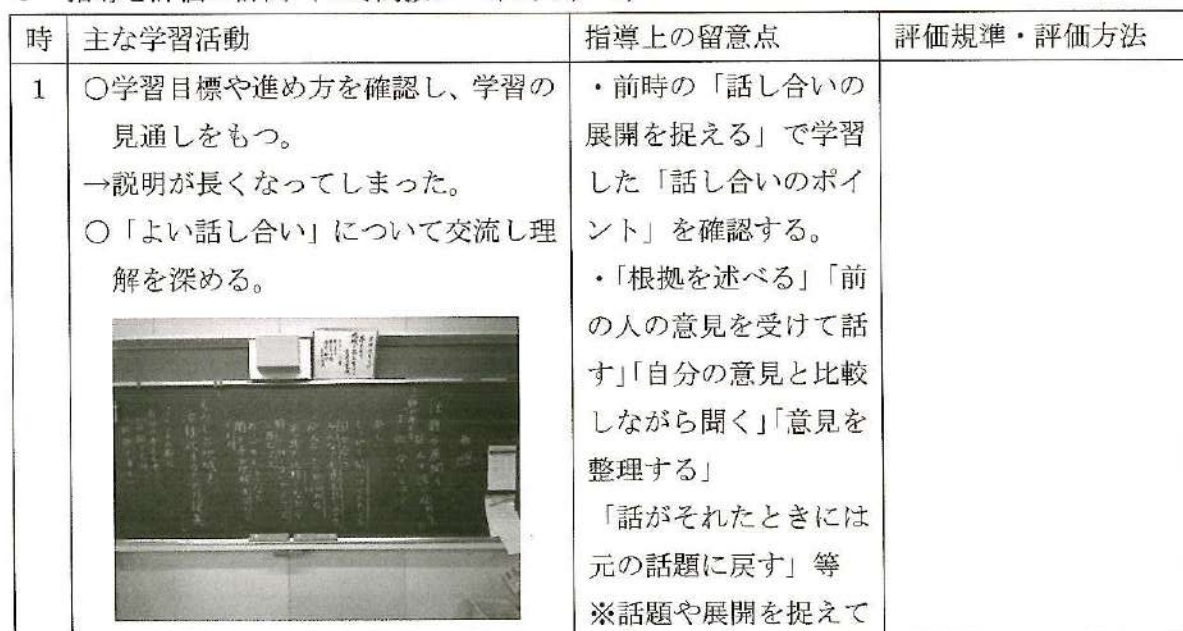 時 主な学習活動 指導上の留意点 評価規準・評価方法
1 ○学習目標や進め方を確認し、学習の
見通しをもつ。
→説明が長くなってしまった。
○「よい話し合い」について交流し理
解を深める。
・前時の「話し合いの
展開を捉える」で学習
した「話し合いのポイ
ント」を確認する。
・「根拠を述べる」「前
の人の意見を受けて話
す」「自分の意見と比較
しながら聞く」「意見を
整理する」
「話がそれたときには
元の話題に戻す」等
※話題や展開を捉えて